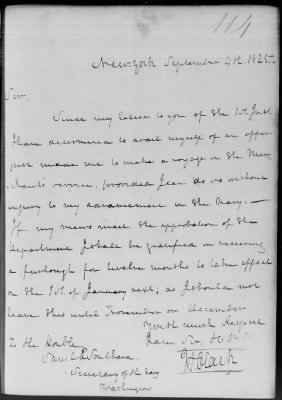 114
New York September 4th 1825.
Sir,
Since my letter to you of the 1st Inst.
I have determined to avail myself of an offer
just made me to make a voyage in the Mer-
chants service, provided I can do so without
injury to my advancement in the Navy. —
If my views meet the approbation of the
Department I shall be gratified in receiving
a furlough for twelve months to take effect
on the 1st of January next; as I should not
leave this until November or December
With much Respect
To the Honble I am Sir,
Saml L. Southard
Secretary of the Navy
Washington
Clark